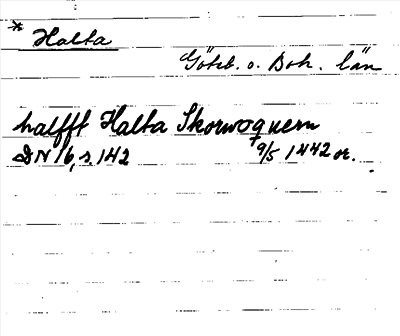 * Halta
Göteb. o. Boh. län
halfft Halta Skorwoguem
DN 16, s. 142 † 9/5 1442 or.